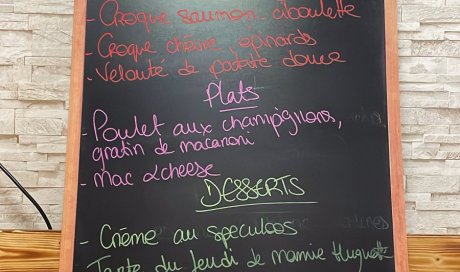 - Croque saumon ciboulette
- Croque chèvre epinards
- Velouté de patate douce
Plats
- Poulet aux champignons,
gratin de macaroni
- Mac & cheese
DESSERTS
- Crème au speculoos
Tarte du jeudi de mamie Huguette